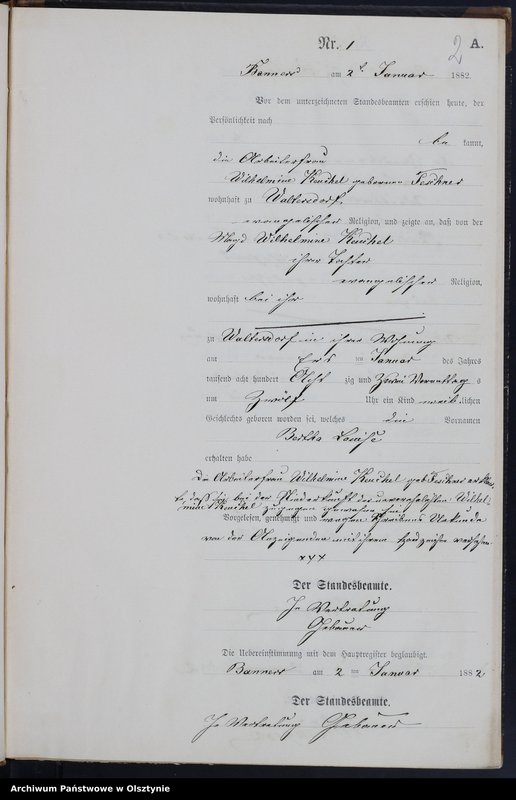 Nr. 1
2 A.
Banners am 2t Januar 1882
Vor dem unterzeichneten Standesbeamten erschien heute, der
Persönlichkeit nach
be kannt,
die Arbeiterfrau
Wilhelmine Keuchel geborene Feschner
wohnhaft zu Waltersdorf,
evangelischer Religion, und zeigte an, daß von der
Magd Wilhelmine Keuchel
ihrer Tochter
evangelischer Religion,
wohnhaft bei ihr
zu Waltersdorf in ihrer Wohnung
am ersten Januar des Jahres
tausend acht hundert Acht zig und zwei Vormittags
um Zwölf Uhr ein Kind weib lichen
Geschlechts geboren worden sei, welches die Vornamen
Bertha Louise
erhalten habe
Die Arbeiterfrau Wilhelmine Keuchel geb. Feschner erklär
te, daß sie bei der Niederkunft der unverehelichten Wilhel-
mine Keuchel zugegen gewesen sei
Vorgelesen, genehmigt und wegen Schreibens Unkunde
von der Anzeigenden mit ihrem Handzeichen versehen.
+++
Der Standesbeamte.
In Vertretung
Gebauer
Die Uebereinstimmung mit dem Hauptregister beglaubigt.
Banners am 2 ten Januar 1882
Der Standesbeamte.
In Vertretung Gebauer
Archiwum Państwowe w Olsztynie